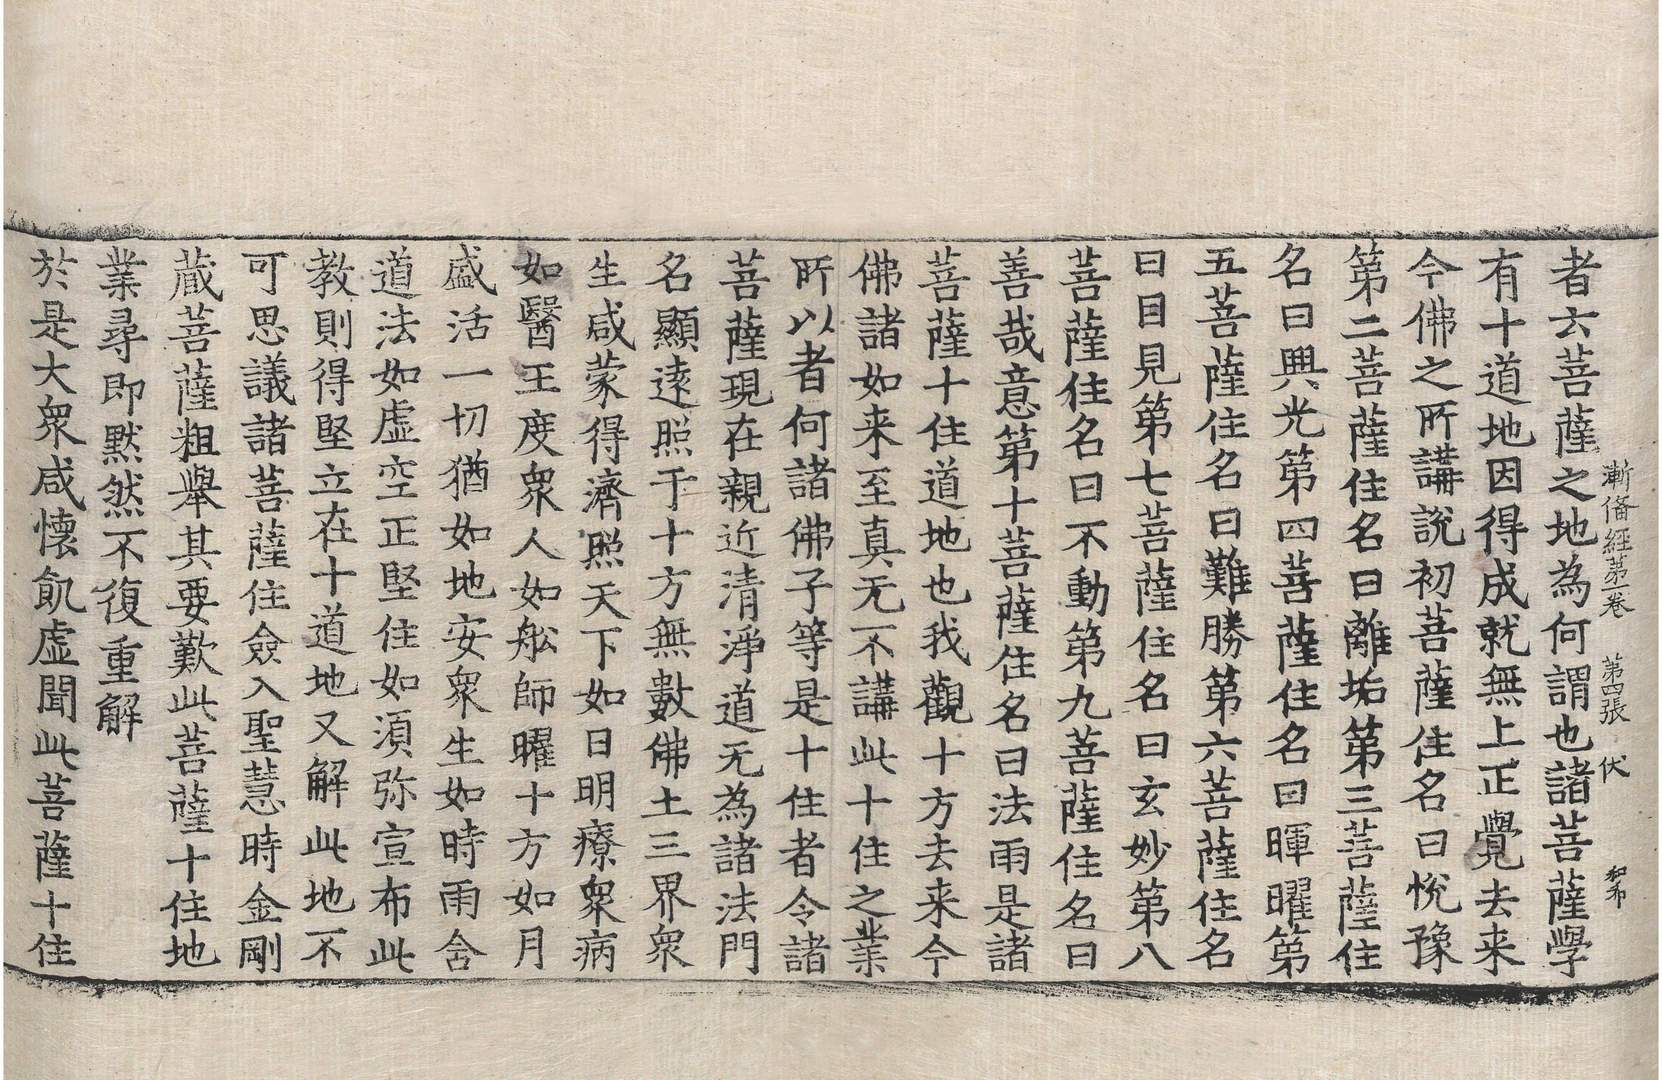 漸備經第一卷　第四張　伏　和希
者六菩薩之地為何謂也諸菩薩學
有十道地因得成就無上正覺去来
今佛之所講說初菩薩住名曰悅豫
第二菩薩住名曰離垢第三菩薩住
名曰興光第四菩薩住名曰暉曜第
五菩薩住名曰難勝第六菩薩住名
曰目見第七菩薩住名曰玄妙第八
菩薩住名曰不動第九菩薩住名曰
善哉意第十菩薩住名曰法雨是諸
菩薩十住道地也我觀十方去来今
佛諸如来至真无不講此十住之業
所以者何諸佛子等是十住者令諸
菩薩現在親近清淨道无為諸法門
名顯遠照于十方無數佛土三界衆
生咸蒙得濟照天下如日明療衆病
如醫王度衆人如舩師曜十方如月
盛活一切猶如地安衆生如時雨含
道法如虛空正堅住如湏弥宣布此
教則得堅立在十道地又解此地不
可思議諸菩薩住僉入聖慧時金剛
蔵菩薩粗舉其要歎此菩薩十住地
業尋即黙然不復重解
於是大衆咸懷飢虛聞此菩薩十住